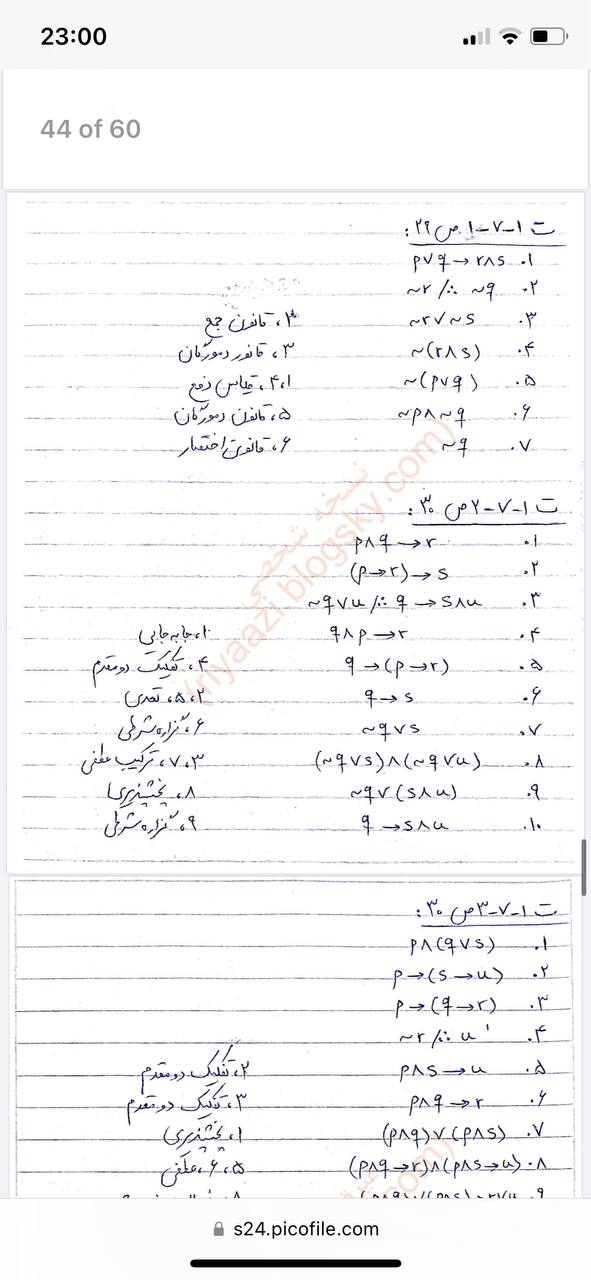 23:00
44 of 60
ت ۱-۷-۱ ص ۲۹ :
۱. p∨q → r∧s
۲. ~r /∴ ~q
۳. ~r∨~s ۲، قانون جمع
۴. ~(r∧s) ۳، قانون دمورگان
۵. ~(p∨q) ۱،۴، قیاس دفع
۶. ~p∧~q ۵، قانون دمورگان
۷. ~q ۶، قانون اختصار
ت ۱-۷-۲ ص ۳۰ :
۱. p∧q → r
۲. (p→r) → s
۳. ~q∨u /∴ q → s∧u
۴. q∧p → r ۱، جابه جایی
۵. q → (p→r) ۴، تفکیک دو مقدم
۶. q → s ۲، ۵، تعدی
۷. ~q∨s ۶، گزاره شرطی
۸. (~q∨s)∧(~q∨u) ۳، ۷، ترکیب عطفی
۹. ~q∨(s∧u) ۸، پخشپذیری
۱۰. q → s∧u ۹، گزاره شرطی
نسخه شخصی
(riyaazi.blogsky.com)
ت ۱-۷-۳ ص ۳۰ :
۱. p∧(q∨s)
۲. p→(s→u)
۳. p→(q→r)
۴. ~r /∴ u
۵. p∧s → u ۲، تفکیک دو مقدم
۶. p∧q → r ۳، تفکیک دو مقدم
۷. (p∧q)∨(p∧s) ۱، پخشپذیری
۸. (p∧q→r)∧(p∧s→u) ۵، ۶، عطفی
s24.picofile.com